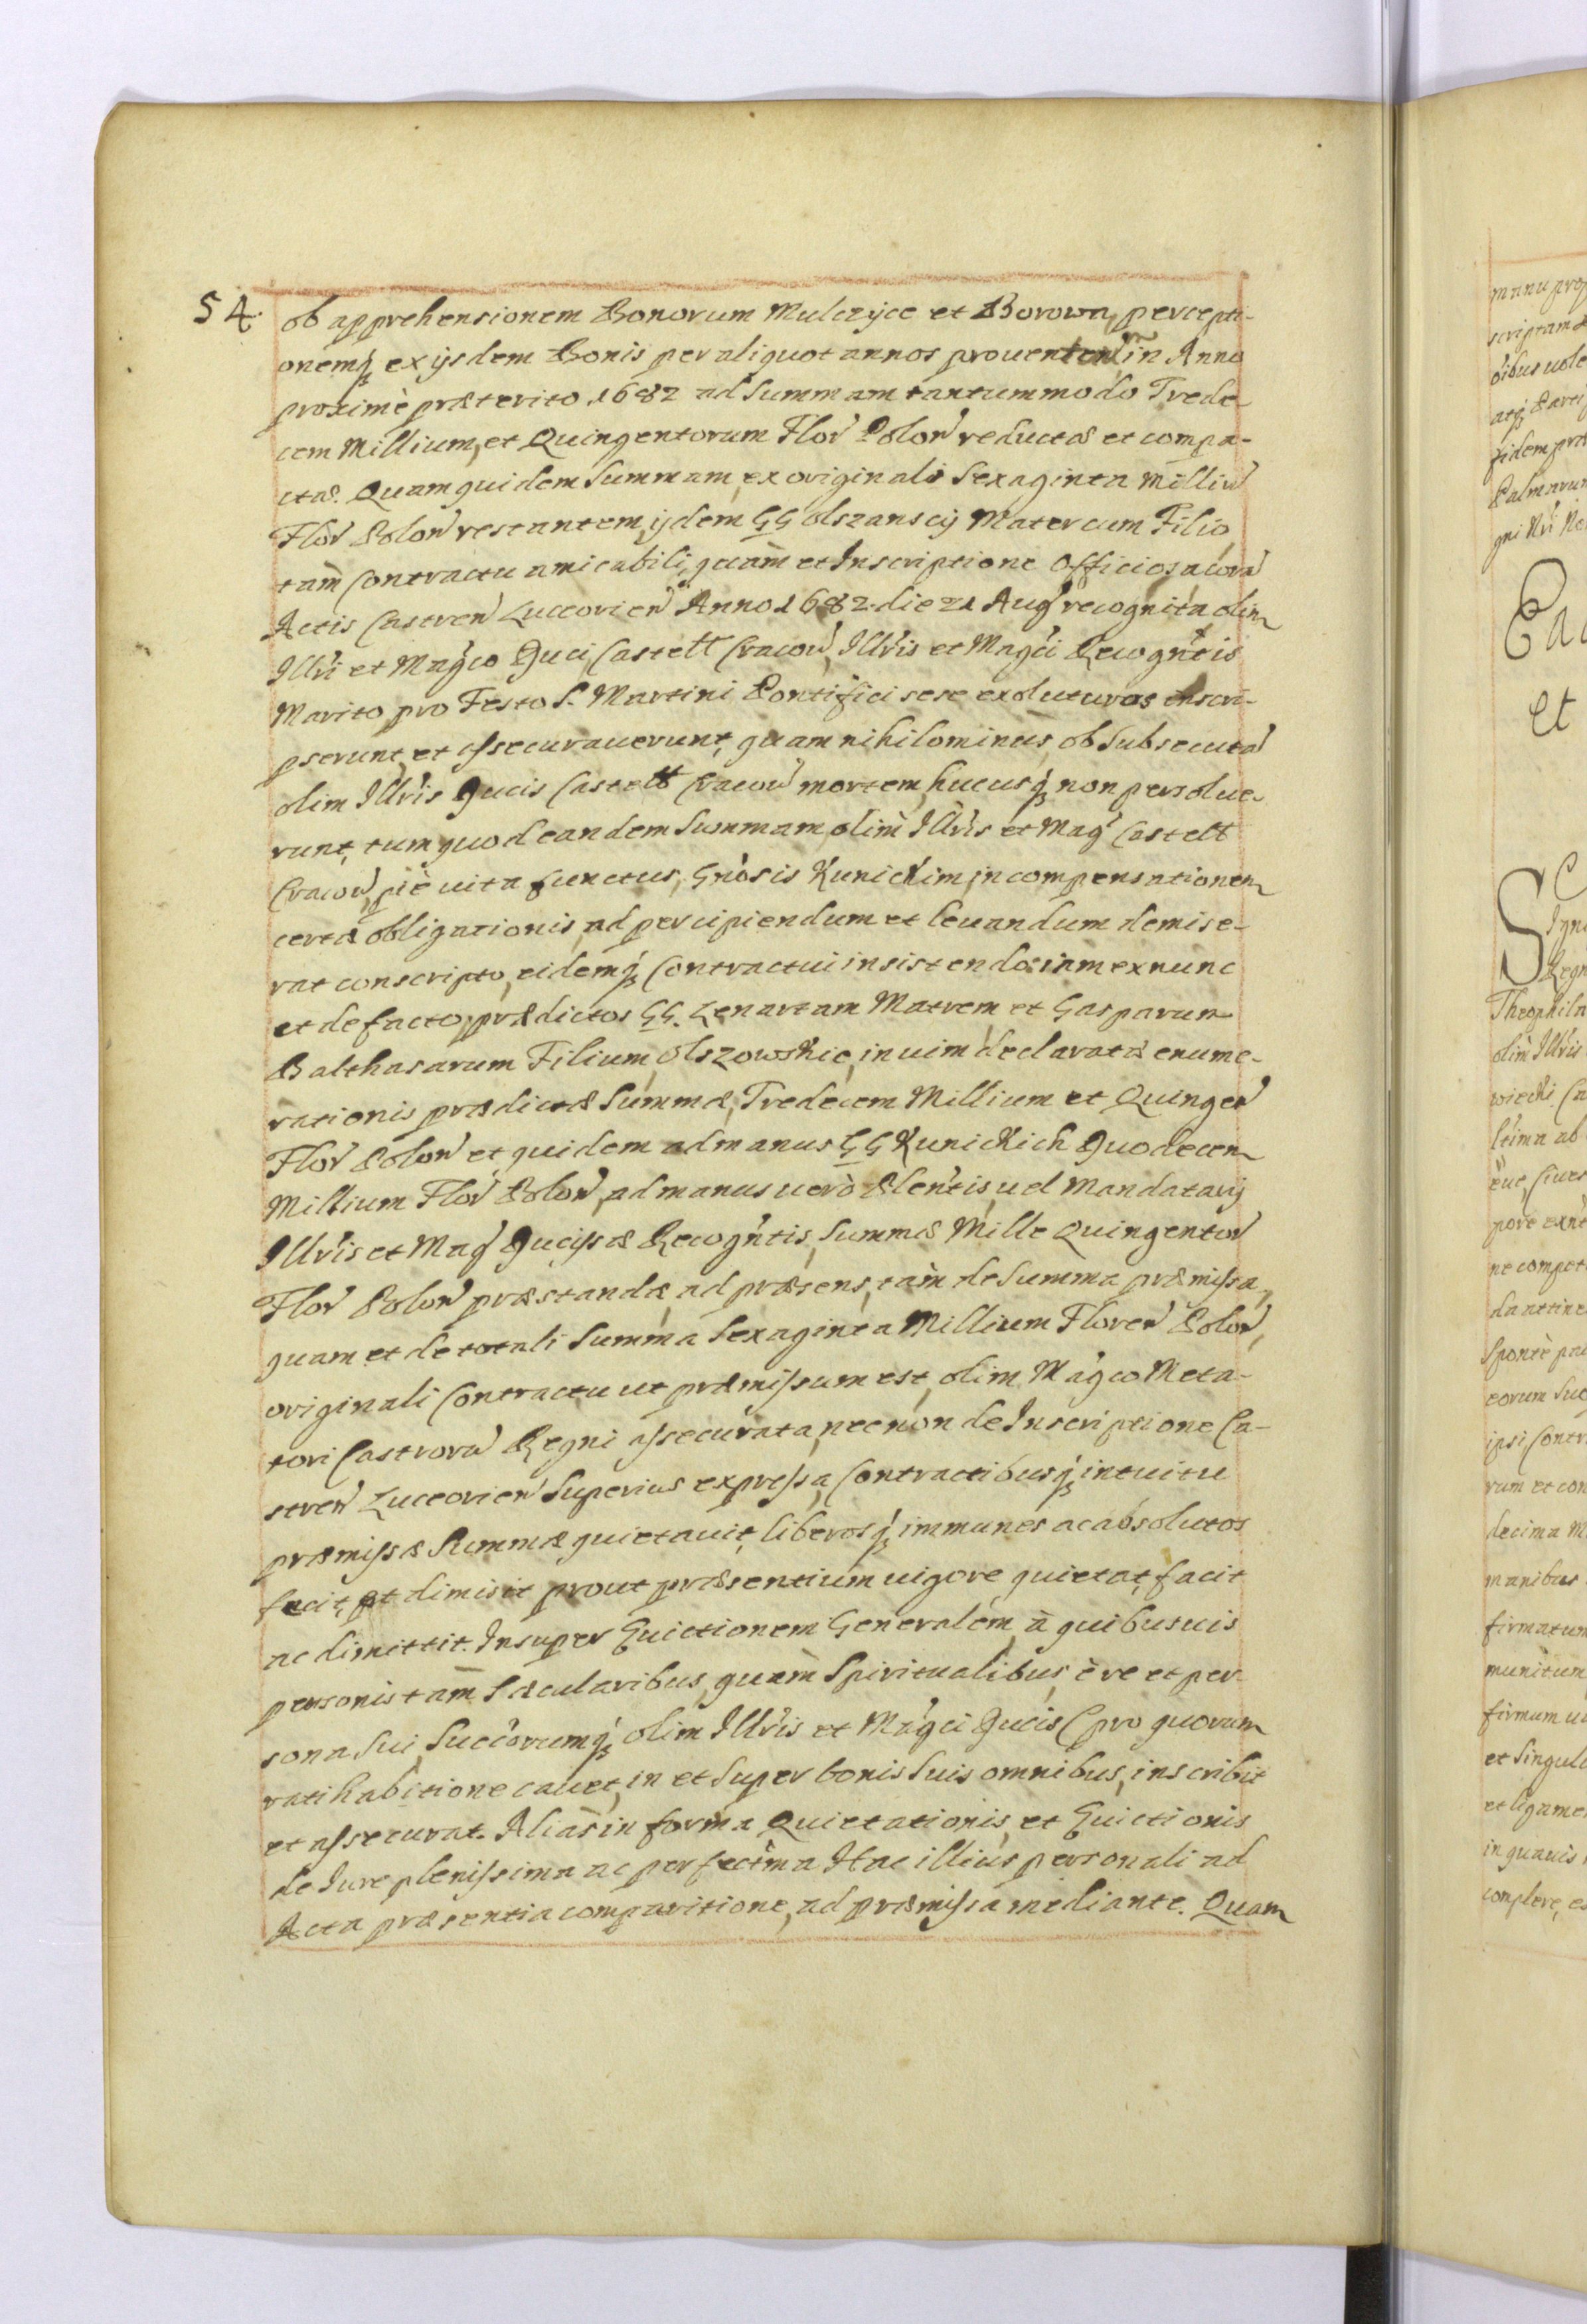 54.
ob apprehensionem Bonorum Mulczyce et Borowa, percepti-
onemq; ex ijsdem Bonis per aliquot annos prouentuũ in Anno
proximè præterito 1682 ad summam tantummodo Trede-
cem Millium, et Quingentorum Flor Polon reductæ et compa-
ctæ. Quam quidem Summam, ex originali Sexaginta Milliu
Flor Polon restantem, ijdem GG Olszanscÿ Mater cum Filio,
tam Contractu amicabili, quàm et Inscriptione Officiosa cora
Actis Castren Luceorien Anno 1682. die 21 Aug recognita olim
Illri et Magco Duci, Castell Cracou, Illris et Magci Recogntis
Marito pro Festo S. Martini Pontifici sese exoluturos inscri-
pserunt et assecurauerunt, quam nihilominus ob subsecuta
olim Illris Ducis Castell Cracou mortem, hucusq; non persolue-
runt, tum quod eandem Summam, olim Illris et Mag Castell
Cracou, piè uita functus, Gnosis Kunickim, in compensationem
certæ obligationis, ad percipiendum et leuandum demise-
rat conscripto, eidemq; Contractui insistendo iam ex nunc
et de facto, prædictos GG. Lenartam Matrem et Gasparum
Balthasarum Filium, Olszowskie, in uim declaratæ enume-
rationis prædictæ Summæ, Tredecem Millium et Quingen
Flor Polon et quidem ad manus GG Kunickich Duodecem
Millium Flor Polon, ad manus uerò Plentis, uel Mandatarij
Illris et Mag Ducissæ Recogntis, Summæ Mille Quingentor
Flor Polon præstandæ, ad præsens, tàm de Summa præmissa,
quam et de totali Summa Sexaginta Millium Floren Polon,
originali Contractu ut præmissum est, olim Magco Meta-
tori Castrorũ Regni assecurata, necnon de Inscriptione Ca-
stren Luceorien Superius expressa, Contractibusq; intuitu
præmissæ Summæ quietauit, liberosq; immunes ac absolutos
fecit, et dimisit prout præsentium uigore quietat, facit
ac dimittit. Insuper Euictionem Generalem, à quibusuis
personis tàm Sæcularibus, quàm Spiritualibus, è re et per-
sona Sui, Succorumq; olim Illris et Magci Ducis (pro quorum
ratihabitione cauet, in et super bonis suis omnibus, inscribit
et assecurat. Alias in forma Quietationis, et Euictionis
de Iure plenissima ac perfectma Hac illius personali ad
Acta præsentia comparitione, ad præmissa mediante. Quam
manu prop
Et